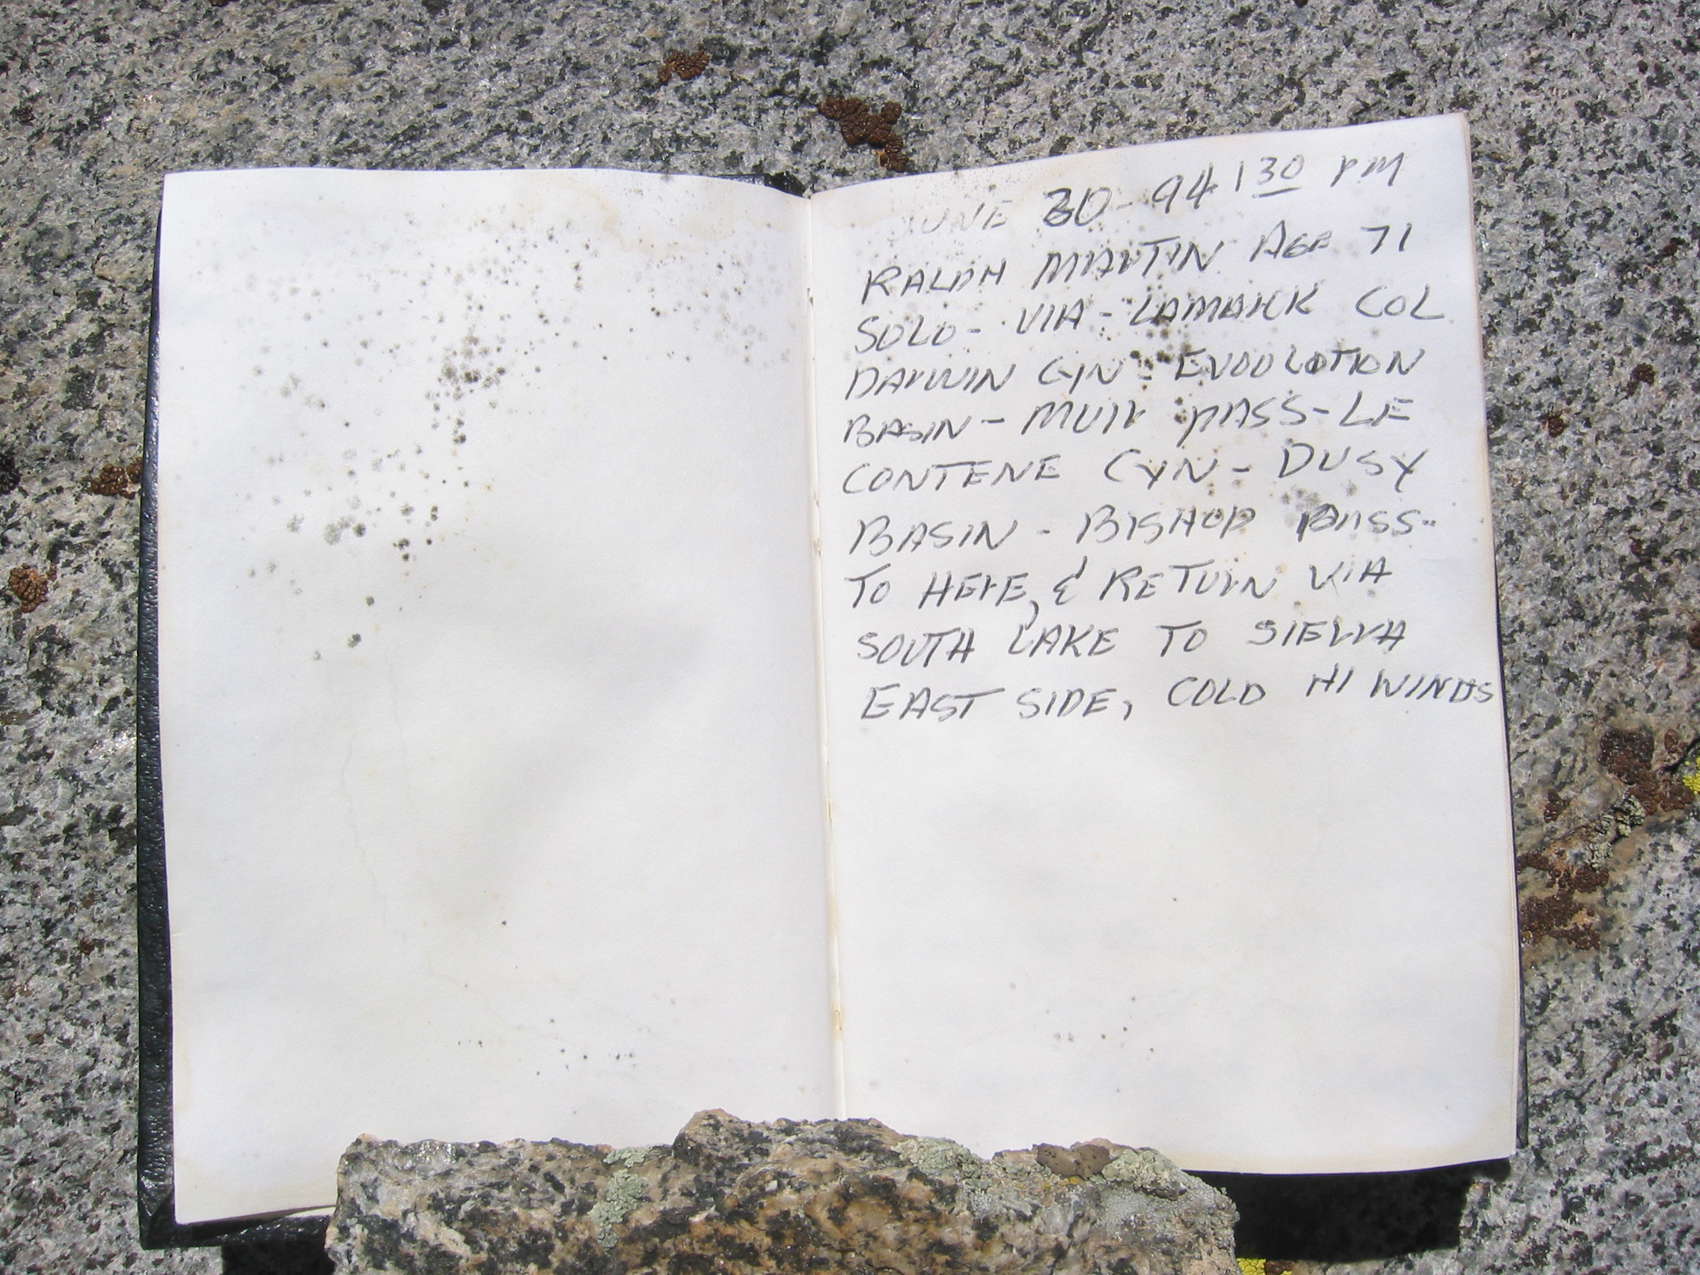 JUNE 30-94 1 30 PM
RALPH MARTIN AGE 71
SOLO- VIA- LAMARCK COL
DARWIN CYN - EVOOLOTION
BASIN - MUIR PASS-LE
CONTENE CYN - DUSY
BASIN - BISHOP PASS-
TO HERE, & RETURN VIA
SOUTH LAKE TO SIERRA
EAST SIDE, COLD HI WINDS